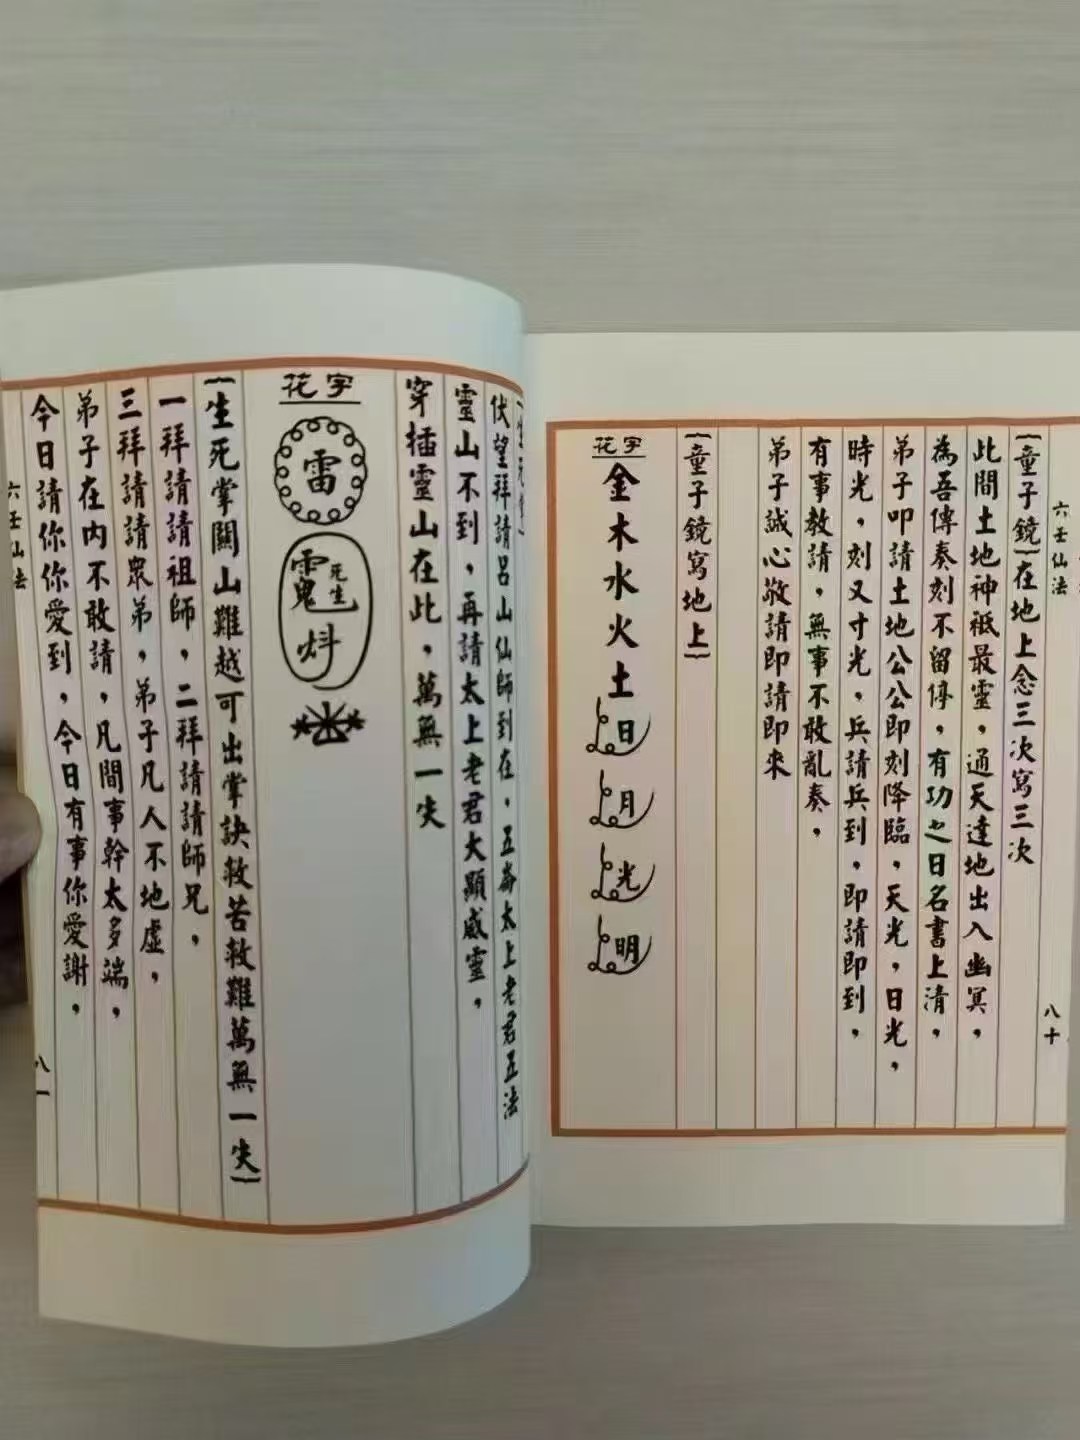 六壬仙法
八十
(童子鏡)在地上念三次寫三次
此間土地神祗最靈，通天達地出入幽冥，
為吾傳奏刻不留停，有功之日名書上清，
弟子叩請土地公公即刻降臨，天光，日光，
時光，刻又寸光，兵請兵到，即請即到，
有事教請，無事不敢亂奏，
弟子誠心敬請即請即來
(童子鏡寫地上)
花字
金木水火土
日
月
光
明
伏望拜請呂山仙師到在，五崙太上老君五法
靈山不到，再請太上老君大顯威靈，
穿插靈山在此，萬無一失
花字
雷
死生
(生死掌關山難越可出掌訣救苦救難萬無一失)
一拜請請祖師，二拜請請師兄，
三拜請請眾弟，弟子凡人不地虛，
弟子在內不敢請，凡間事幹太多端，
今日請你你愛到，今日有事你愛謝，
六壬仙法
八一